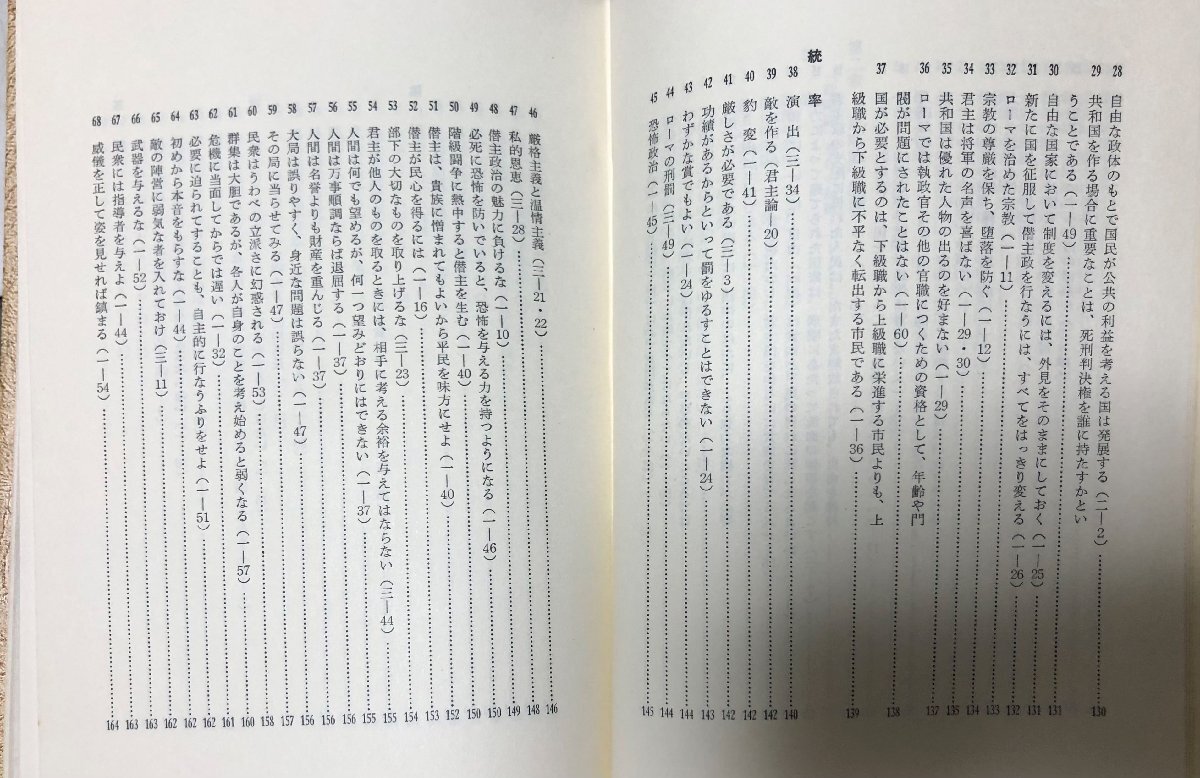 28 自由な政体のもとで国民が公共の利益を考える国は発展する（二—2）……130
29 共和国を作る場合に重要なことは、死刑判決権を誰に持たすかとい
うことである（一—49）……131
30 自由な国家において制度を変えるには、外見をそのままにしておく（一—25）……131
31 新たに国を征服して僭主政を行なうには、すべてをはっきり変える（一—26）……131
32 ローマを治めた宗教（一—11）……132
33 宗教の尊厳を保ち、堕落を防ぐ（一—12）……133
34 君主は将軍の名声を喜ばない（一—29・30）……134
35 共和国は優れた人物の出るのを好まない（一—29）……135
36 ローマでは執政官その他の官職につくための資格として、年齢や門
閥が問題にされたことはない（一—60）……138
37 国が必要とするのは、下級職から上級職に栄進する市民よりも、上
級職から下級職に不平なく転出する市民である（一—36）……139
統率
38 演出（三—34）……140
39 敵を作る（君主論—20）……142
40 豹変（一—41）……142
41 厳しさが必要である（三—3）……142
42 功績があるからといって罰をゆるすことはできない（一—24）……143
43 わずかな賞でもよい（一—24）……144
44 ローマの刑罰（三—49）……144
45 恐怖政治（一—45）……145
46 厳格主義と温情主義（三—21・22）……146
47 私的恩恵（三—28）……148
48 僭主政治の魅力に負けるな（一—10）……149
49 必死に恐怖を防いでいると、恐怖を与える力を持つようになる（一—46）……150
50 階級闘争に熱中すると僭主を生む（一—40）……150
51 僭主は、貴族に憎まれてもよいから平民を味方にせよ（一—40）……152
52 僭主が民心を得るには（一—16）……153
53 部下の大切なものを取り上げるな（三—23）……154
54 君主が他人のものを取るときには、相手に考える余裕を与えてはならない（三—44）……155
55 人間は何でも望めるが、何一つ望みどおりにはできない（一—37）……155
56 人間は万事順調ならば退屈する（一—37）……156
57 人間は名誉よりも財産を重んじる（一—37）……156
58 大局は誤りやすく、身近な問題は誤らない（一—47）……157
59 その局に当らせてみる（一—47）……158
60 民衆はうわべの立派さに幻惑される（一—53）……160
61 群集は大胆であるが、各人が自身のことを考え始めると弱くなる（一—57）……161
62 危機に当面してからでは遅い（一—32）……162
63 必要に迫られてすることも、自主的に行なうふりをせよ（一—51）……162
64 初めから本音をもらすな（一—44）……162
65 敵の陣営に弱気な者を入れておけ（三—11）……163
66 武器を与えるな（一—52）……163
67 民衆には指導者を与えよ（一—44）……164
68 威儀を正して姿を見せれば鎮まる（一—54）